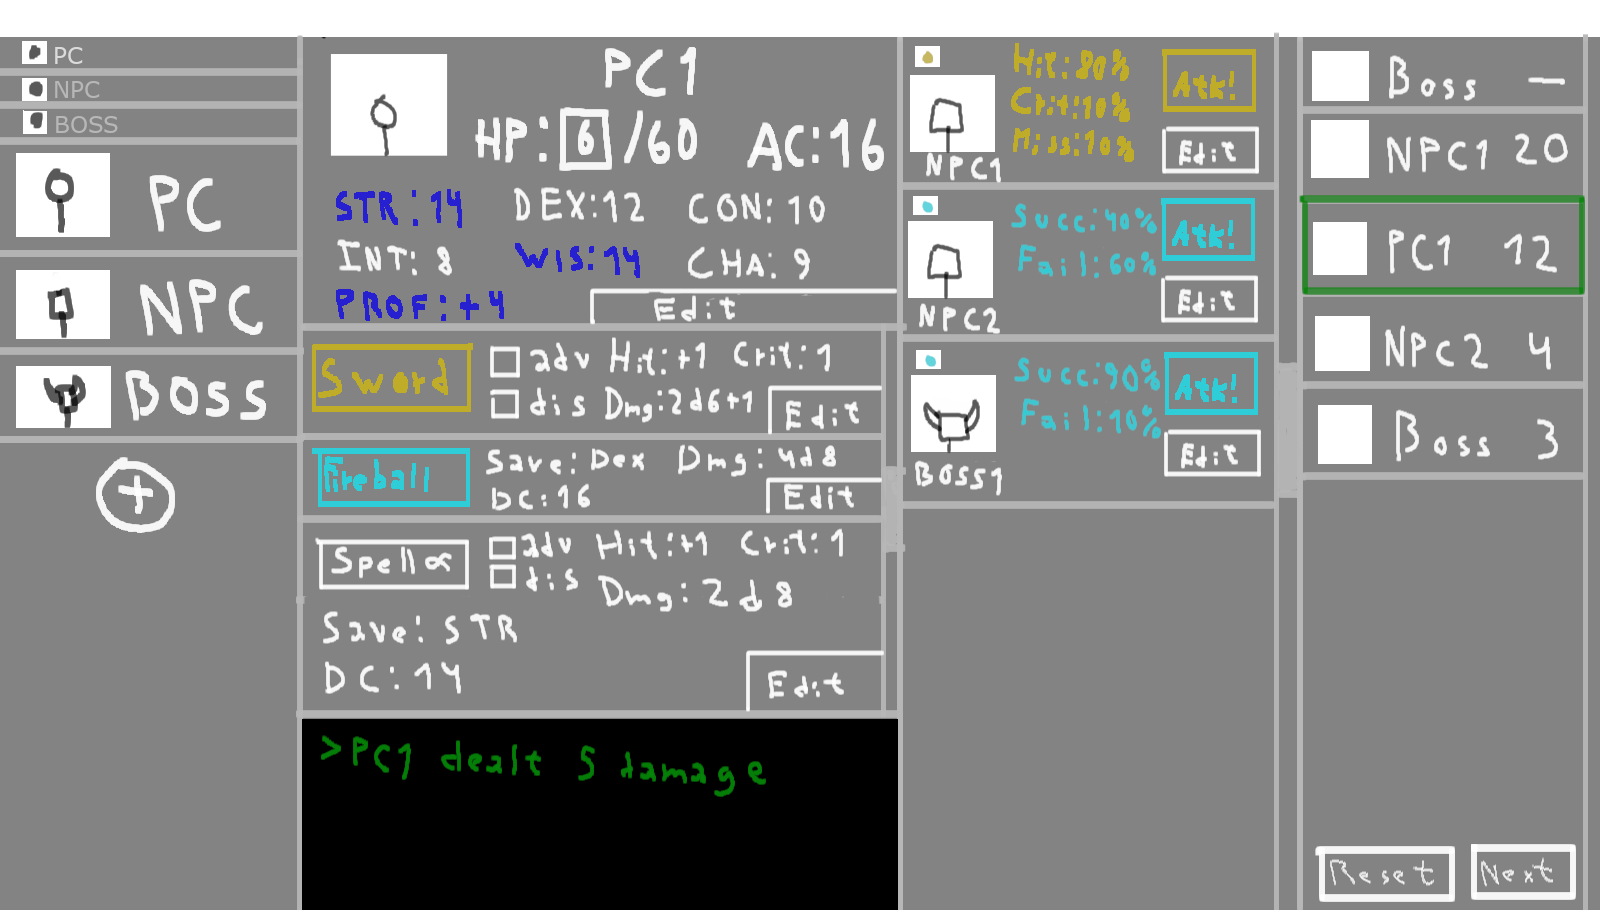 PC
NPC
BOSS
PC
NPC
BOSS
+
PC1
HP: 6 /60 AC:16
STR:14 DEX:12 CON:10
INT:8 WIS:14 CHA:9
PROF:+4 Edit
Sword
adv Hit:+1 Crit:1
dis Dmg:2d6+1 Edit
Fireball
Save:Dex Dmg:4d8
DC:16 Edit
Spell∝
adv Hit:+1 Crit:1
dis Dmg:2d8
Save:STR
DC:14 Edit
>PC1 dealt 5 damage
NPC1
Hit:80% Atk!
Crit:10%
Miss:10% Edit
NPC2
Succ:40% Atk!
Fail:60% Edit
BOSS1
Succ:90% Atk!
Fail:10% Edit
Boss —
NPC1 20
PC1 12
NPC2 4
Boss 3
Reset Next